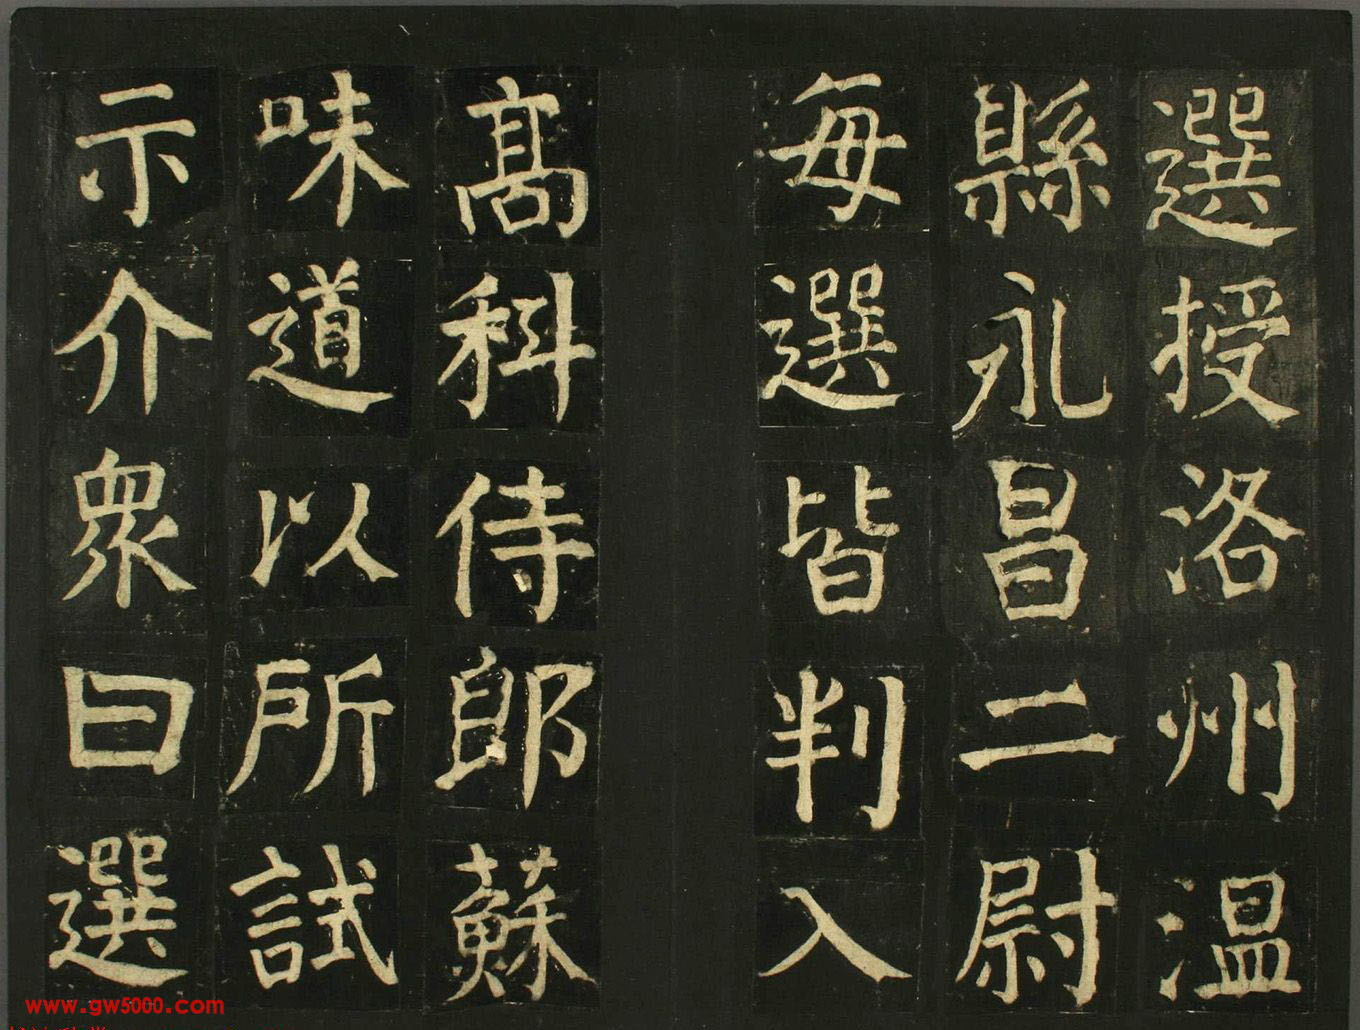 選授洛州溫
縣永昌二尉
每選皆判入
髙科侍郎蘇
味道以所試
示介衆曰選
www.gw5000.com